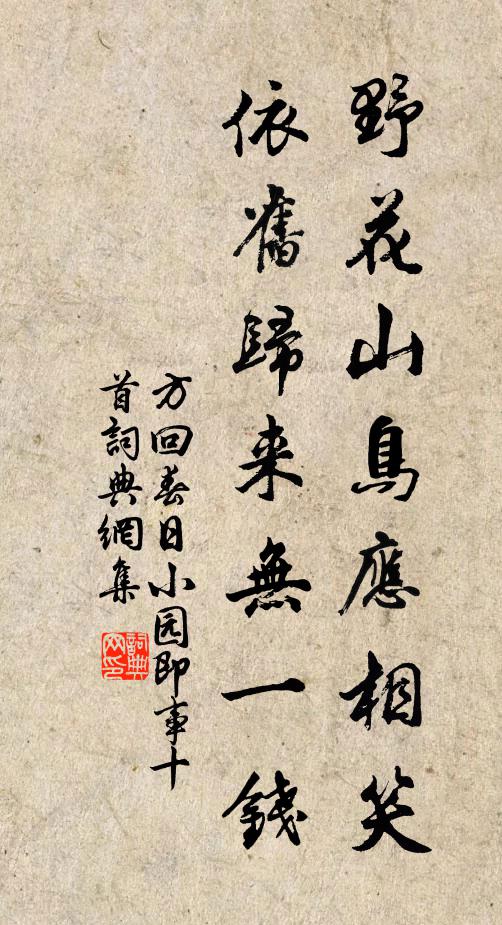 野花山鳥應相笑
依舊歸来無一錢
方回春日小园即事十
首詞典網集
詞典网印